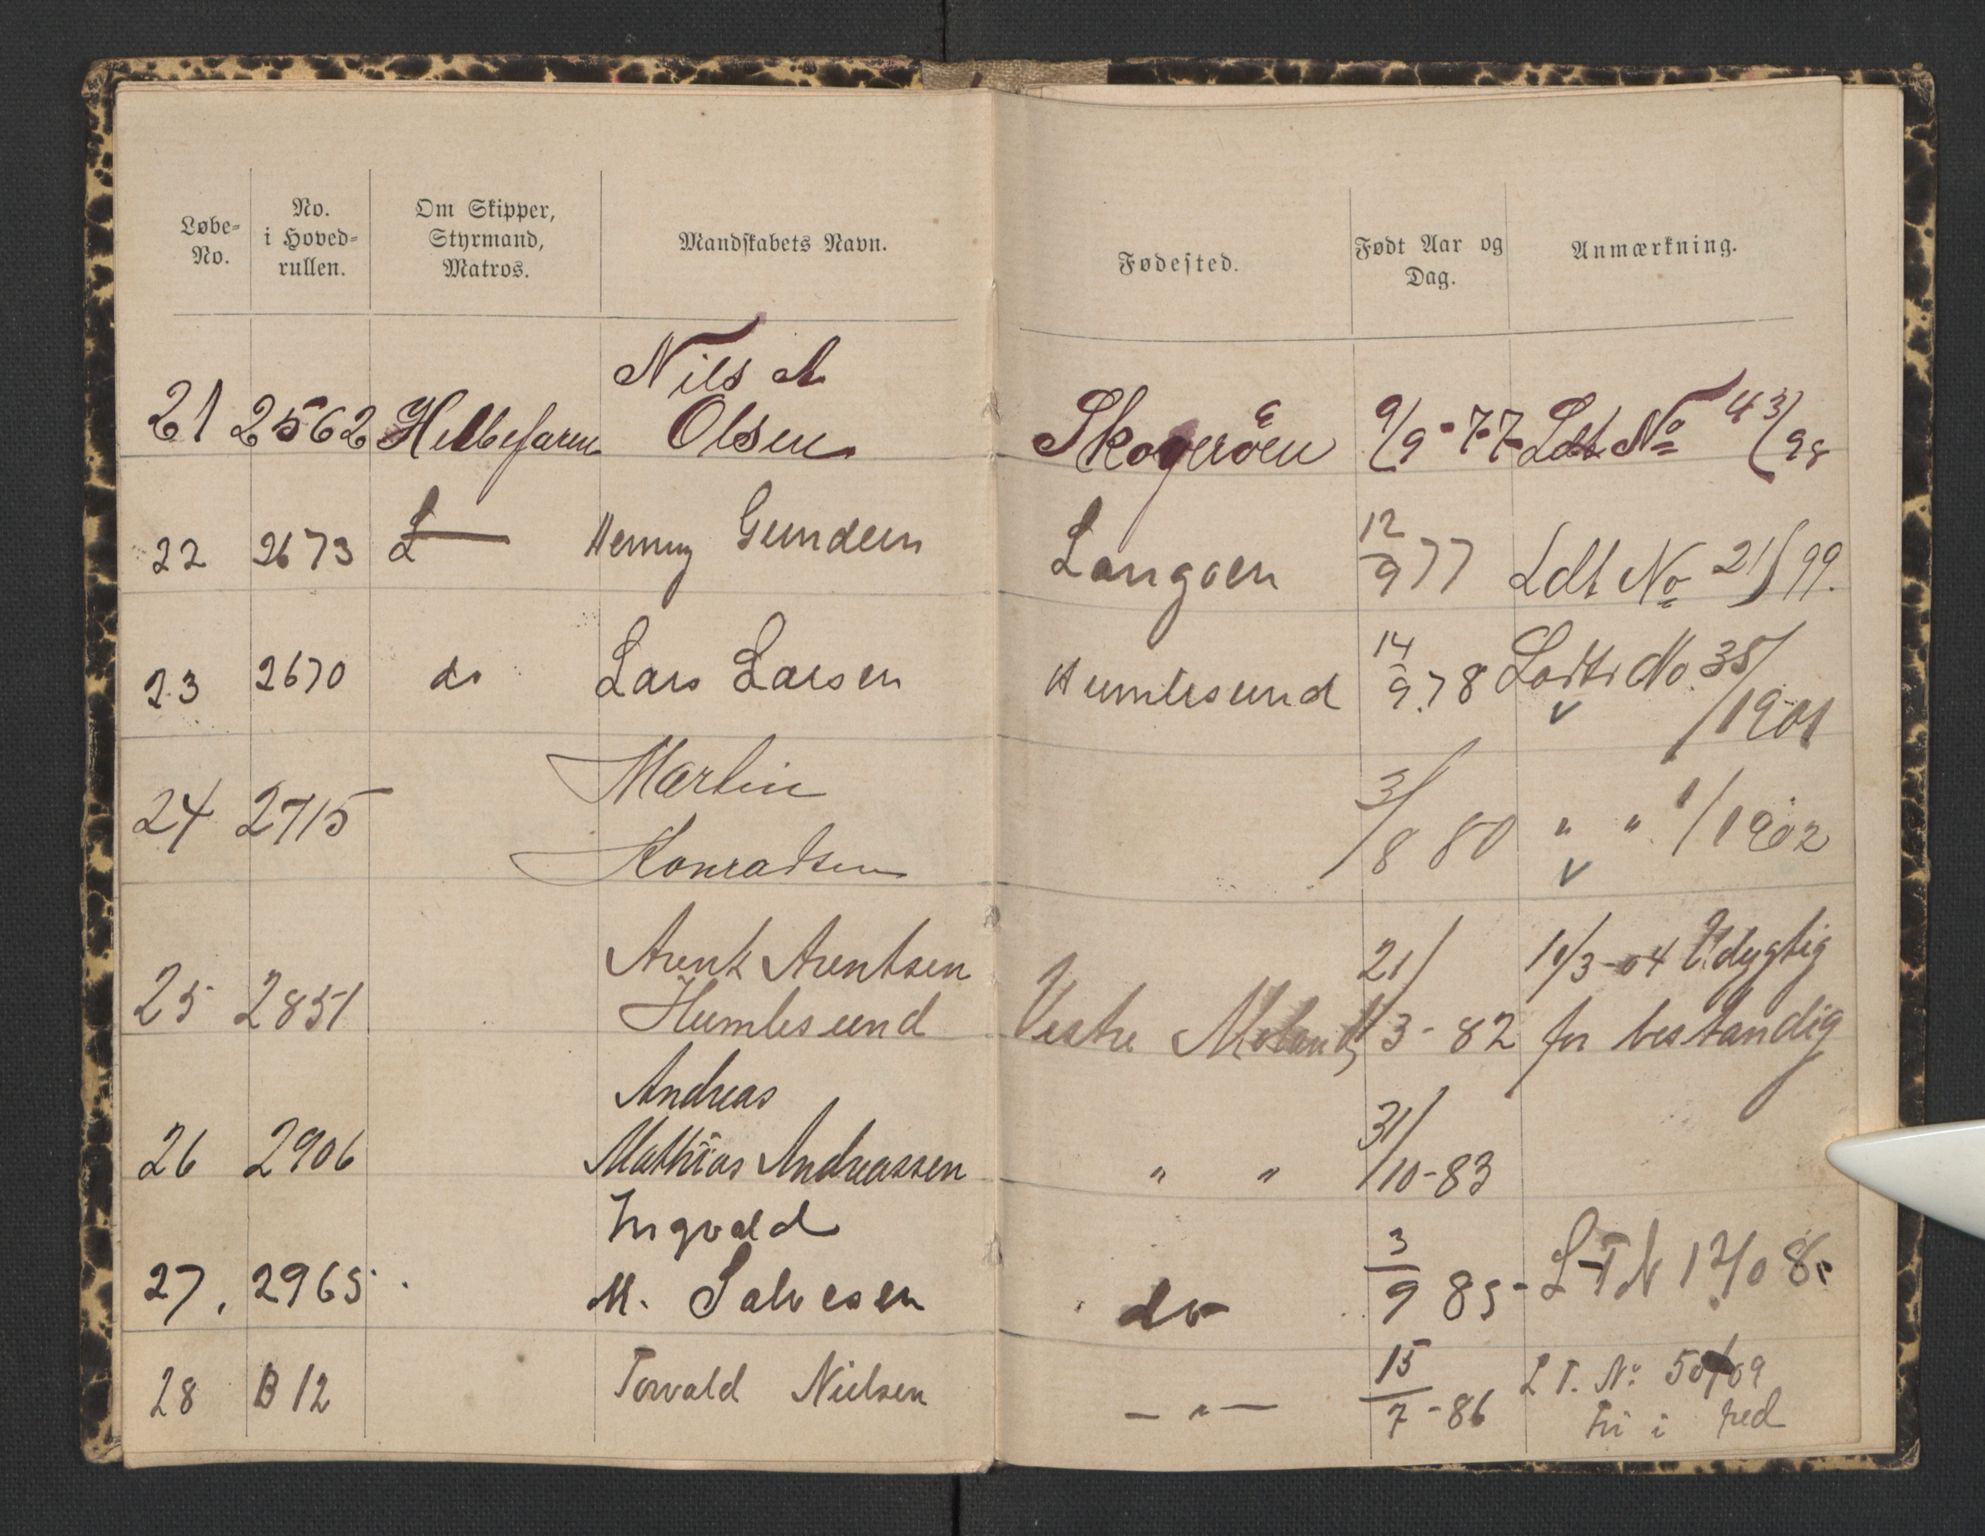 Løbe-
No.
No.
i Hoved-
rullen.
Om Skipper,
Styrmand,
Matros.
Mandskabets Navn.
Fødested.
Født Aar og
Dag.
Anmærkning.
21 2562 Nils A
Olsen Skogerøen 9/9-77 Ldt No 43/98
22 2673 Gundersen Langøen 12/9 77 Ldt No 21/99.
23 2670 do Lars Larsen Humlesund 14/9 78 No. 38/1901
24 2715 Martin
Konradsen 3/8 80 " " 1/1902
25 2851 Arent Arentsen
Humlesund Vestre Moland 21/3-82 10/3-04 Udygtig
for bestandig
26 2906 Andreas
Mathias Andreassen " " 31/10-83
27. 2965 Ingvald
M. Salvesen do 3/9 85- L T N 12/08.
28 B 12 Torvald Nielsen — " — 15/7-86 L T. No 50/09
Fri i fred